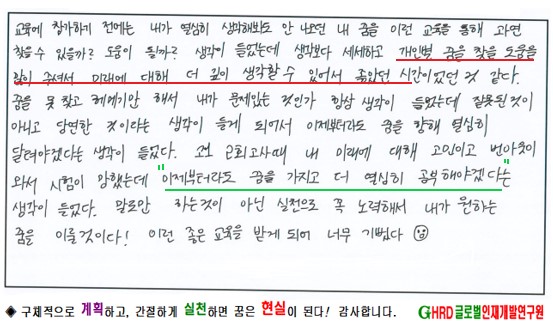 교육에 참가하기 전에는 내가 열심히 생각해봐도 안 나오던 내 꿈을 이런 교육을 통해 과연
찾을 수 있을까? 도움이 될까? 생각이 들었는데 생각보다 세세하고 개인별 꿈을 찾을 도움을
많이 주셔서 미래에 대해 더 깊이 생각할 수 있어서 좋았던 시간이었던 것 같다.
꿈을 못 찾고 헤매기만 해서 내가 문제있는 것인가 항상 생각이 들었는데 잘못된 것이
아니고 당연한 것이라는 생각이 들게 되어서 이제부터라도 꿈을 향해 열심히
달려야겠다는 생각이 들었다. 고1 2회고사때 내 미래에 대해 고민이고 번아웃이
와서 시험이 망했는데 "이제부터라도 꿈을 가지고 더 열심히 공부해야겠다"는
생각이 들었다. 말로만 하는것이 아닌 실천으로 꼭 노력해서 내가 원하는
꿈을 이룰것이다! 이런 좋은 교육을 받게 되어 너무 기뻤다
◈ 구체적으로 계획하고, 간절하게 실천하면 꿈은 현실이 된다! 감사합니다. GHRD 글로벌인재개발연구원